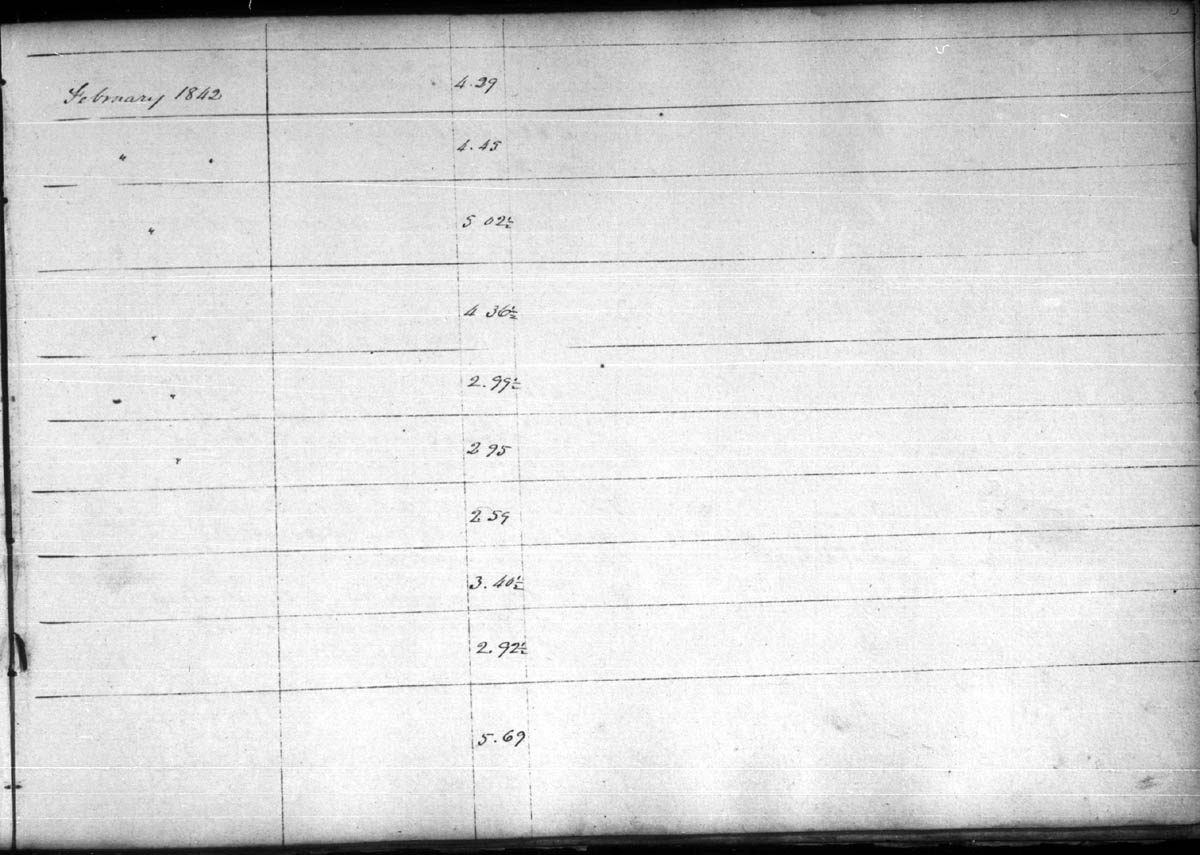 February 1842 4.29
" 4.45
" 5 02½
" 4 36½
" 2.99½
" 2 95
2 59
3.40½
2.92½
5.69